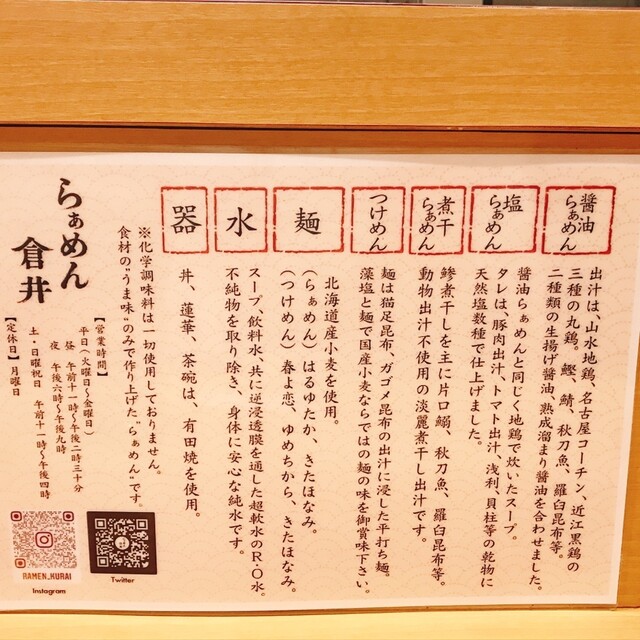 醤油らぁめん
出汁は、山水地鶏、名古屋コーチン、近江黒鶏の
三種の丸鶏。鰹、鯖、秋刀魚、羅臼昆布等。
二種類の生揚げ醤油、熟成溜まり醤油を合わせました。
塩らぁめん
醤油らぁめんと同じく地鶏で炊いたスープ。
タレは、豚肉出汁、トマト出汁、浅利、貝柱等の乾物に
天然塩数種で仕上げました。
煮干らぁめん
鯵煮干しを主に片口鰯、秋刀魚、羅臼昆布等。
動物出汁不使用の淡麗煮干し出汁です。
つけめん
麺は猫足昆布、ガゴメ昆布の出汁に浸した平打ち麺。
藻塩と麺で国産小麦ならではの麺の味を御賞味下さい。
麺
北海道産小麦を使用。
（らぁめん）はるゆたか、きたほなみ。
（つけめん）春よ恋、ゆめちから、きたほなみ。
水
スープ、飲料水、共に逆浸透膜を通した超軟水のR・O水。
不純物を取り除き、身体に安心な純水です。
器
丼、蓮華、茶碗は、有田焼を使用。
※化学調味料は一切使用しておりません。
食材の"うま味"のみで作り上げた"らぁめん"です。
らぁめん
倉井
【営業時間】
平日（火曜日〜金曜日）
昼 午前十一時〜午後二時三十分
夜 午後六時〜午後九時
土・日曜祝日 午前十一時〜午後四時
【定休日】月曜日
RAMEN_KURAI
Instagram
Twitter